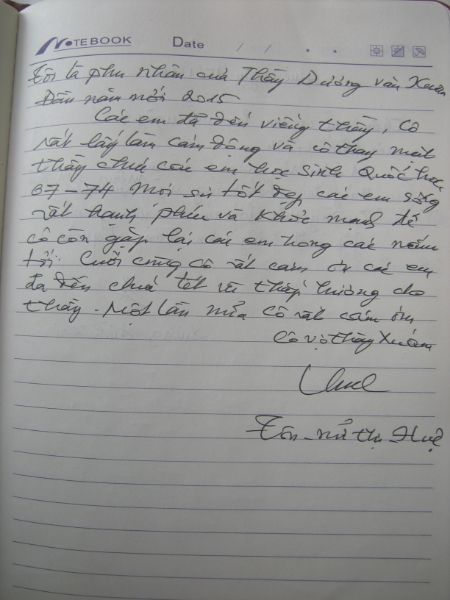 NOTEBOOK Date / / . .
Tôi là phu nhân của Thầy Dương văn Xuân
Đầu năm mới 2015
Các em đã đến viếng thầy, Cô
rất lấy làm cảm động và cô thay mặt
thầy chúc các em học sinh Quốc học
67-74 mọi sự tốt đẹp các em sống
rất hạnh phúc và khỏe mạnh để
cô còn gặp lại các em trong các năm
tới. Cuối cùng cô rất cám ơn các em
đã đến chúc tết và thắp hương cho
thầy. Một lần nữa cô rất cám ơn
Cô vợ thầy Xuân
Huệ
Tôn-nữ thị Huệ